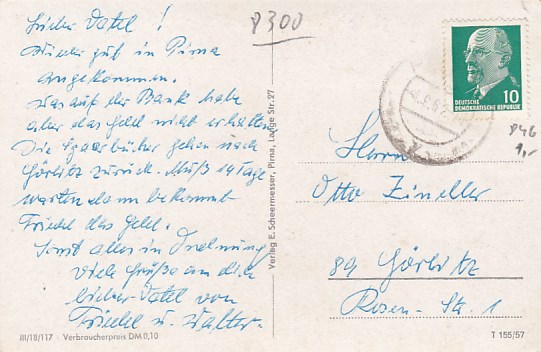 8300
Lieber Vatel!
Wieder gut in Pirna
angekommen.
War auf der Bank habe
aber das Geld nicht erhalten
Die Sparbücher gehen nach
Görlitz zurück. Muß 14 Tage
warten dann bekommt
Friedel das Geld.
Sonst alles in Ordnung
Viele Grüße an dich
lieber Vatel von
Friedel u. Walter.
III/18/117 · Verbraucherpreis DM 0,10
Verlag E. Scheermesser, Pirna, Lange Str. 27
DEUTSCHE
DEMOKRATISCHE REPUBLIK
10
846
1,-
Herrn
Otto Zineller
89 Görlitz
Rosen- Str. 1
T 155/57